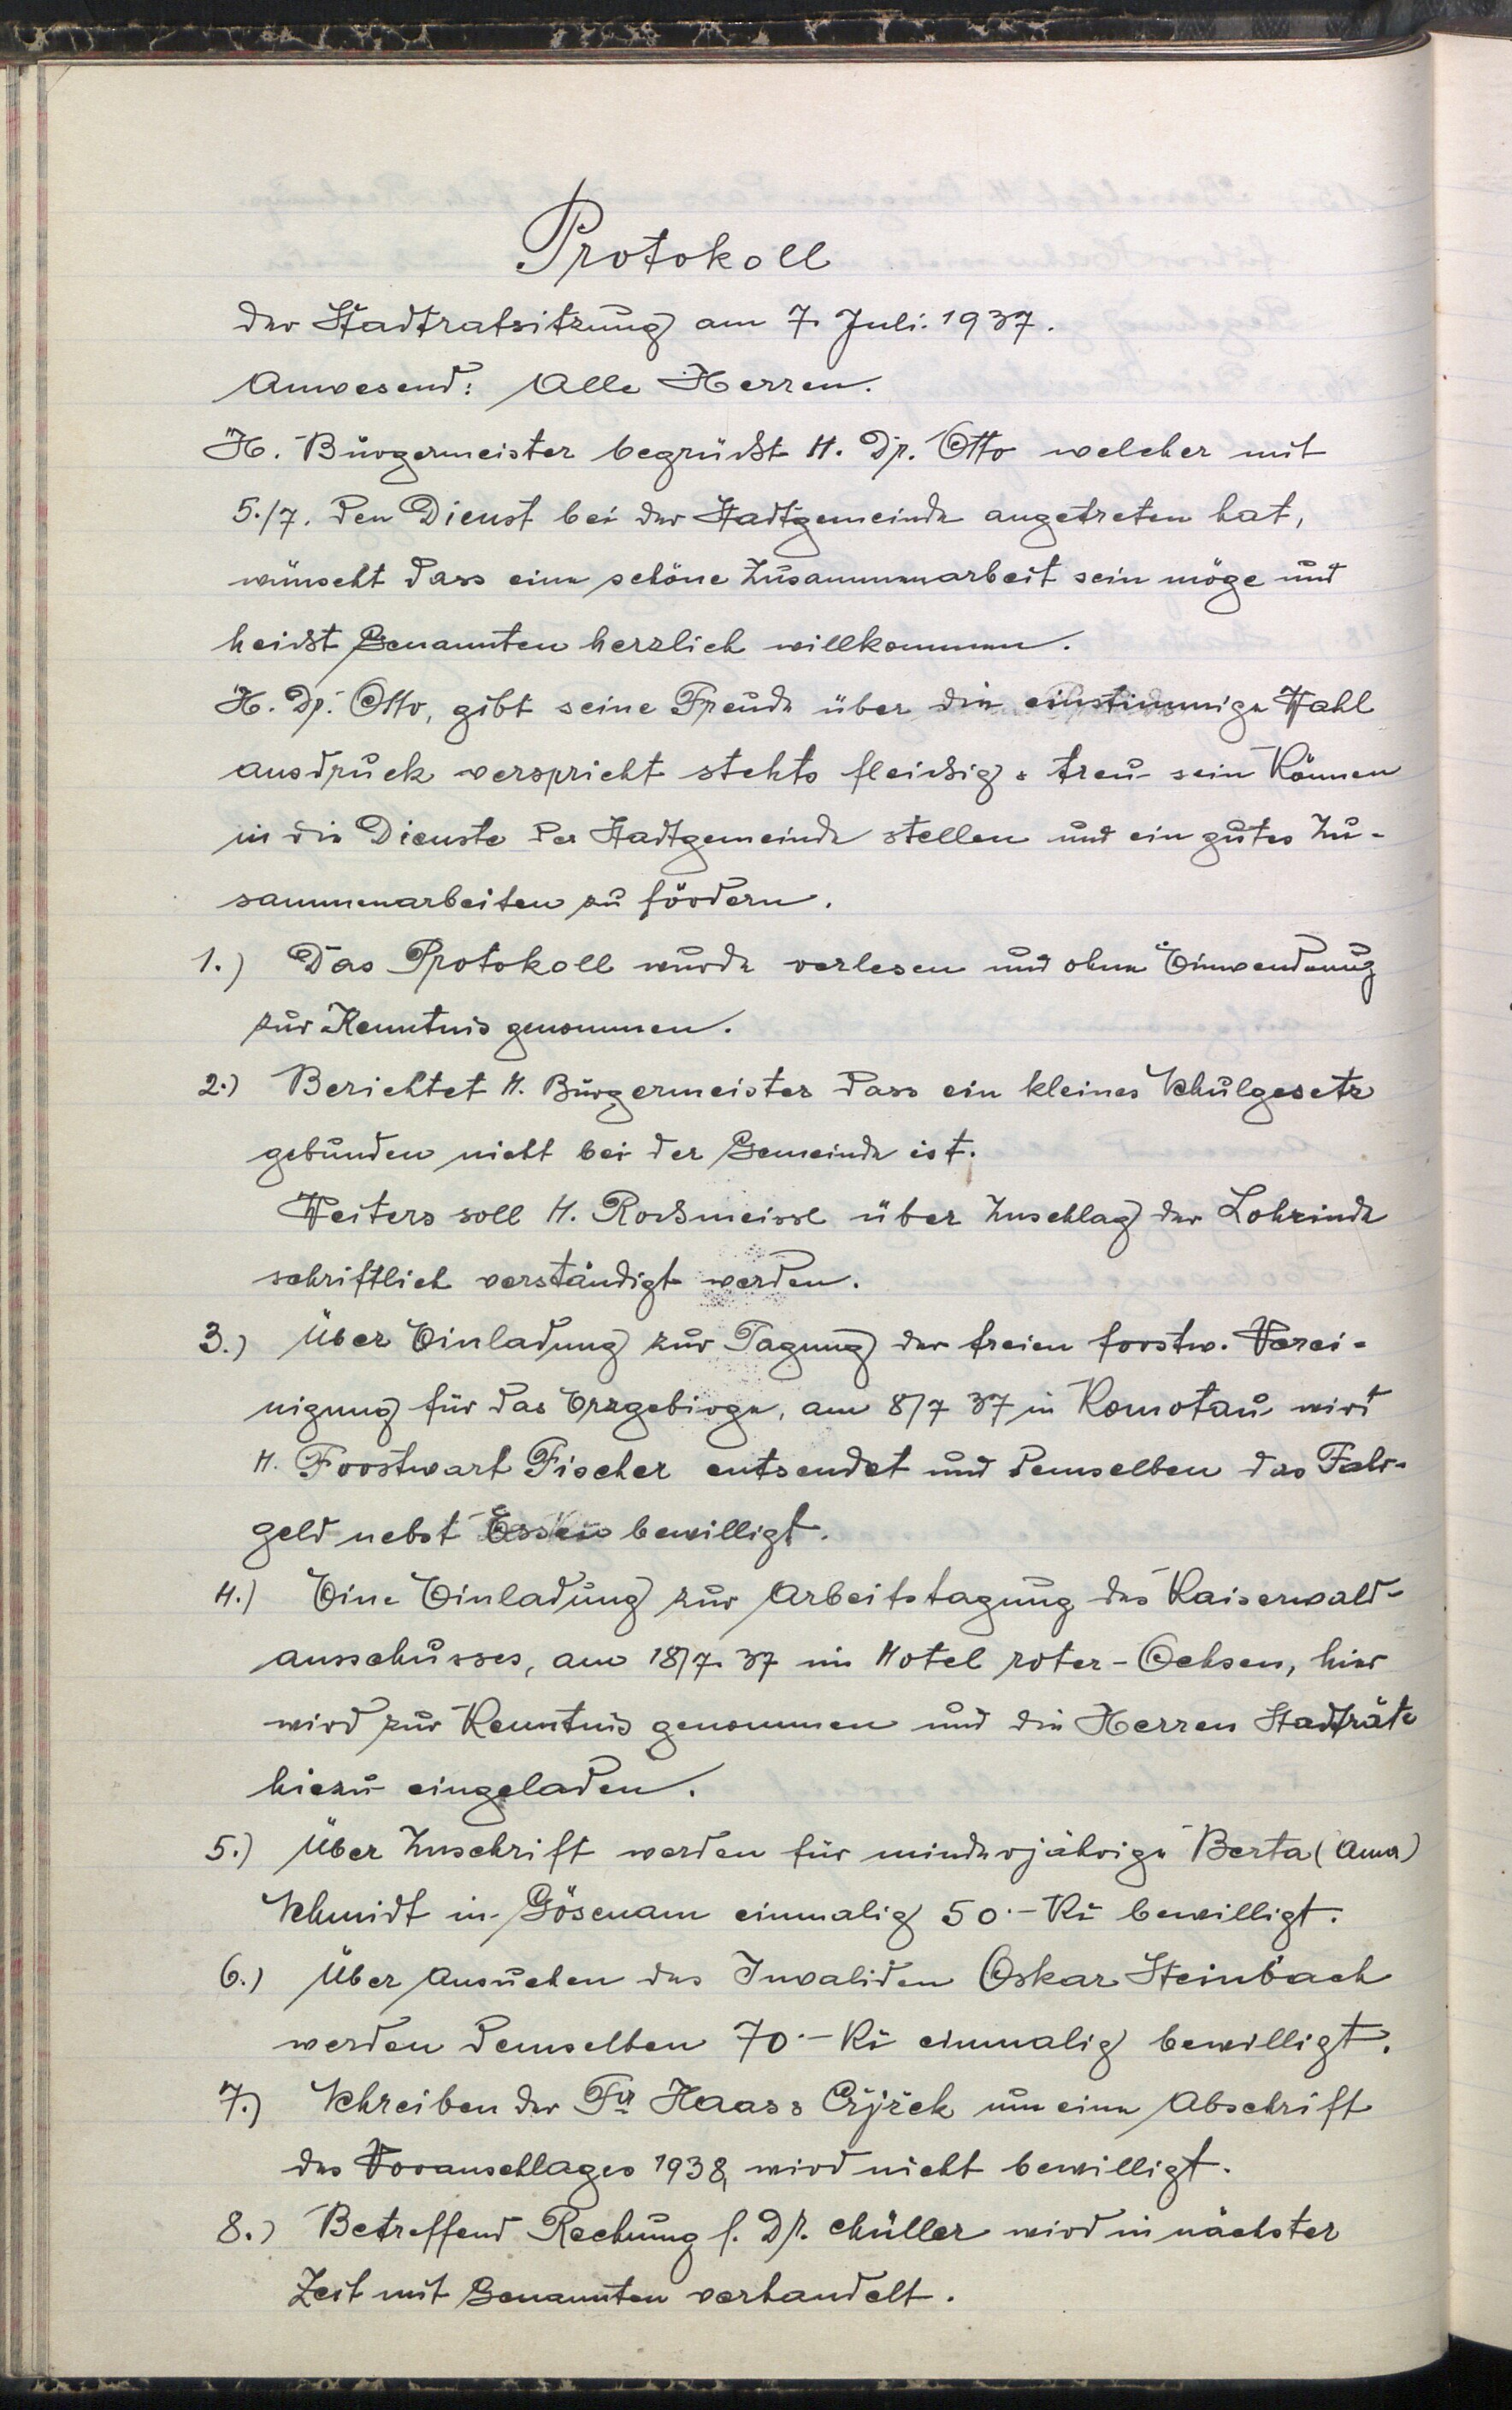 Protokoll
der Stadtratsitzung am 7. Juli. 1937.
Anwesend: Alle Herren.
H. Bürgermeister begrüßt H. Dr. Otto welcher mit
5./7. den Dienst bei der Stadtgemeinde angetreten hat,
wünscht dass eine schöne Zusammenarbeit sein möge und
heißt Genannten herzlich willkommen.
H. Dr. Otto, gibt seine Freude über die einstimmige Wahl
ausdruck verspricht stehts fleißig & treu sein Können
in die Dienste der Stadtgemeinde stellen und ein gutes Zu-
sammenarbeiten zu fördern.
1.) Das Protokoll wurde verlesen und ohne Einwendung
zur Kenntnis genommen.
2.) Berichtet H. Bürgermeister dass ein kleines Schulgesetz
gebunden nicht bei der Gemeinde ist.
Weiters soll H. Roßmeissl über Zuschlag der Lohrinde
schriftlich verständigt werden.
3.) Über Einladung zur Tagung der freien forstw. Verei-
nigung für das Erzgebirge, am 8/7 37 in Komotau wird
H. Forstwart Fischer entsendet und demselben das Fahr-
geld nebst Essen bewilligt.
4.) Eine Einladung zur Arbeitstagung des Kaiserwald-
ausschusses, am 18/7. 37 im Hotel roter-Ochsen, hier
wird zur Kenntnis genommen und die Herren Stadträte
hiezu eingeladen.
5.) Über Zuschrift werden für minderjährige Berta (Anna)
Schmidt in Gösenam einmalig 50.- Kč bewilligt.
6.) Über Ansuchen des Invaliden Oskar Steinbach
werden demselben 70.- Kč einmalig bewilligt.
7.) Schreiben der Fa Haas & Cžjžek um eine Abschrift
des Voranschlages 1938, wird nicht bewilligt.
8.) Betreffend Rechung f. Dr. Müller wird in nächster
Zeit mit Genannten verhandelt.